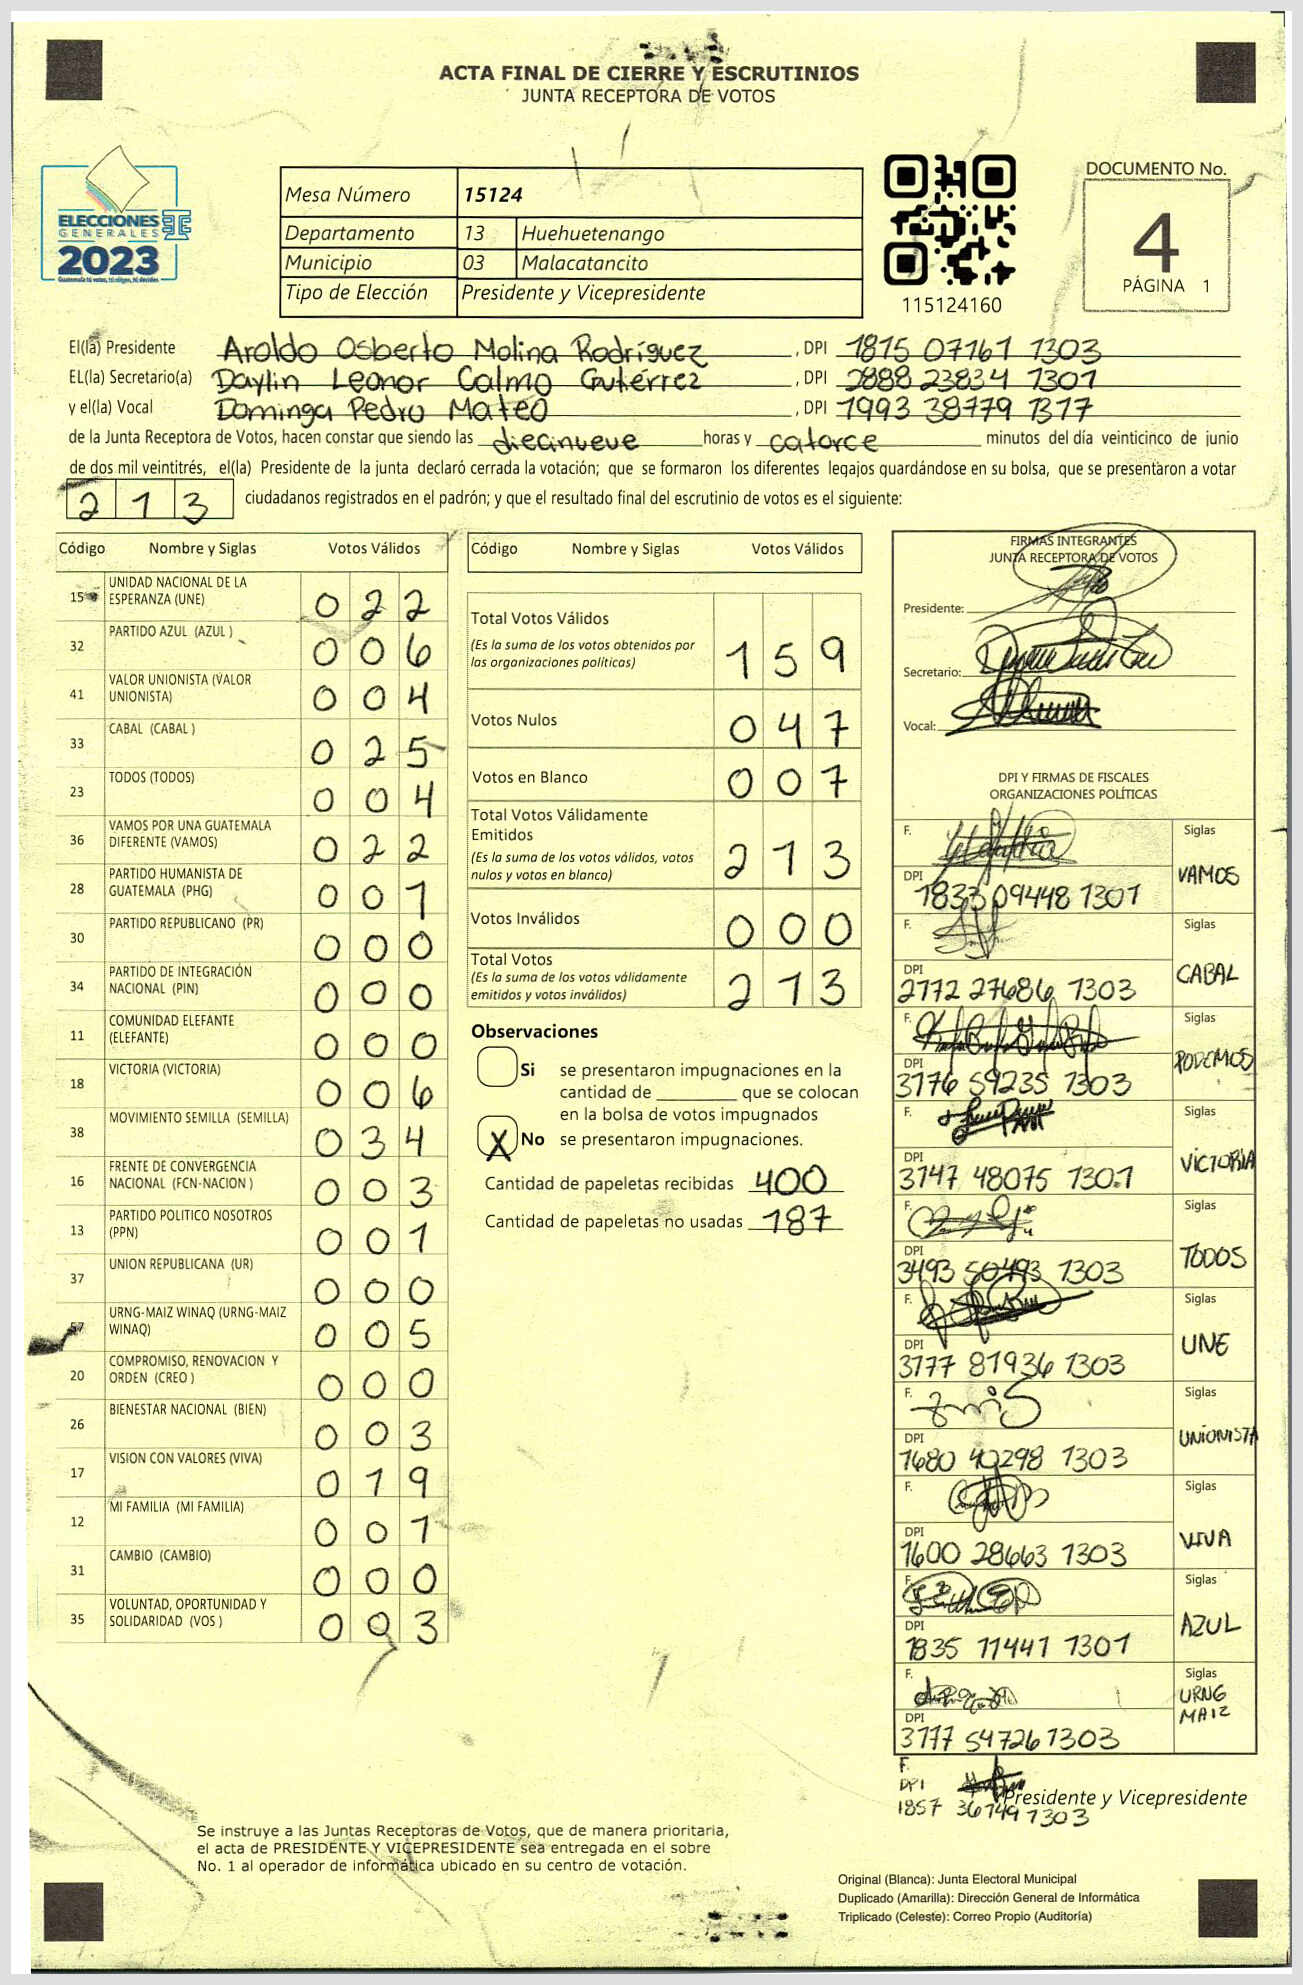 ACTA FINAL DE CIERRE Y ESCRUTINIOS
JUNTA RECEPTORA DE VOTOS
ELECCIONES
GENERALES
2023
Mesa Número 15124
Departamento 13 Huehuetenango
Municipio 03 Malacatancito
Tipo de Elección Presidente y Vicepresidente
115124160
DOCUMENTO No.
4
PÁGINA 1
El(la) Presidente Aroldo Osberto Molina Rodríguez , DPI 1815 07161 1303
EL(la) Secretario(a) Daylin Leonor Calmo Gutiérrez , DPI 2888 23834 1301
y el(la) Vocal Dominga Pedro Mateo , DPI 1993 38779 1317
de la Junta Receptora de Votos, hacen constar que siendo las diecinueve horas y catorce minutos del día veinticinco de junio
de dos mil veintitrés, el(la) Presidente de la junta declaró cerrada la votación; que se formaron los diferentes legajos guardándose en su bolsa, que se presentaron a votar
213 ciudadanos registrados en el padrón; y que el resultado final del escrutinio de votos es el siguiente:
Código Nombre y Siglas Votos Válidos
15 UNIDAD NACIONAL DE LA ESPERANZA (UNE) 022
32 PARTIDO AZUL (AZUL ) 006
41 VALOR UNIONISTA (VALOR UNIONISTA) 004
33 CABAL (CABAL ) 025
23 TODOS (TODOS) 004
36 VAMOS POR UNA GUATEMALA DIFERENTE (VAMOS) 022
28 PARTIDO HUMANISTA DE GUATEMALA (PHG) 001
30 PARTIDO REPUBLICANO (PR) 000
34 PARTIDO DE INTEGRACIÓN NACIONAL (PIN) 000
11 COMUNIDAD ELEFANTE (ELEFANTE) 000
18 VICTORIA (VICTORIA) 006
38 MOVIMIENTO SEMILLA (SEMILLA) 034
16 FRENTE DE CONVERGENCIA NACIONAL (FCN-NACION ) 003
13 PARTIDO POLITICO NOSOTROS (PPN) 001
37 UNION REPUBLICANA (UR) 000
57 URNG-MAIZ WINAQ (URNG-MAIZ WINAQ) 005
20 COMPROMISO, RENOVACION Y ORDEN (CREO ) 000
26 BIENESTAR NACIONAL (BIEN) 003
17 VISION CON VALORES (VIVA) 019
12 MI FAMILIA (MI FAMILIA) 001
31 CAMBIO (CAMBIO) 000
35 VOLUNTAD, OPORTUNIDAD Y SOLIDARIDAD (VOS ) 003
Código Nombre y Siglas Votos Válidos
Total Votos Válidos 159
(Es la suma de los votos obtenidos por
las organizaciones políticas)
Votos Nulos 047
Votos en Blanco 007
Total Votos Válidamente
Emitidos 213
(Es la suma de los votos válidos, votos
nulos y votos en blanco)
Votos Inválidos 000
Total Votos 213
(Es la suma de los votos válidamente
emitidos y votos inválidos)
Observaciones
Si se presentaron impugnaciones en la
cantidad de ________ que se colocan
en la bolsa de votos impugnados
X No se presentaron impugnaciones.
Cantidad de papeletas recibidas 400
Cantidad de papeletas no usadas 187
FIRMAS INTEGRANTES
JUNTA RECEPTORA DE VOTOS
Presidente:
Secretario:
Vocal:
DPI Y FIRMAS DE FISCALES
ORGANIZACIONES POLÍTICAS
F. Siglas
DPI 1833 09448 1301 VAMOS
F. Siglas
DPI 2772 27686 1303 CABAL
F. Siglas
DPI 3176 59235 1303 PODEMOS
F. Siglas
DPI 3147 48075 1301 VICTORIA
F. Siglas
DPI 3493 50493 1303 TODOS
F. Siglas
DPI 3177 81936 1303 UNE
F. Siglas
DPI 1680 40298 1303 UNIONISTA
F. Siglas
DPI 1600 28663 1303 VIVA
F. Siglas
DPI 1835 11441 1301 AZUL
F. Siglas
DPI 3177 54726 1303 URNG MAIZ
F.
DPI
1857 36749 1303
Presidente y Vicepresidente
Se instruye a las Juntas Receptoras de Votos, que de manera prioritaria,
el acta de PRESIDENTE Y VICEPRESIDENTE sea entregada en el sobre
No. 1 al operador de informática ubicado en su centro de votación.
Original (Blanca): Junta Electoral Municipal
Duplicado (Amarilla): Dirección General de Informática
Triplicado (Celeste): Correo Propio (Auditoría)